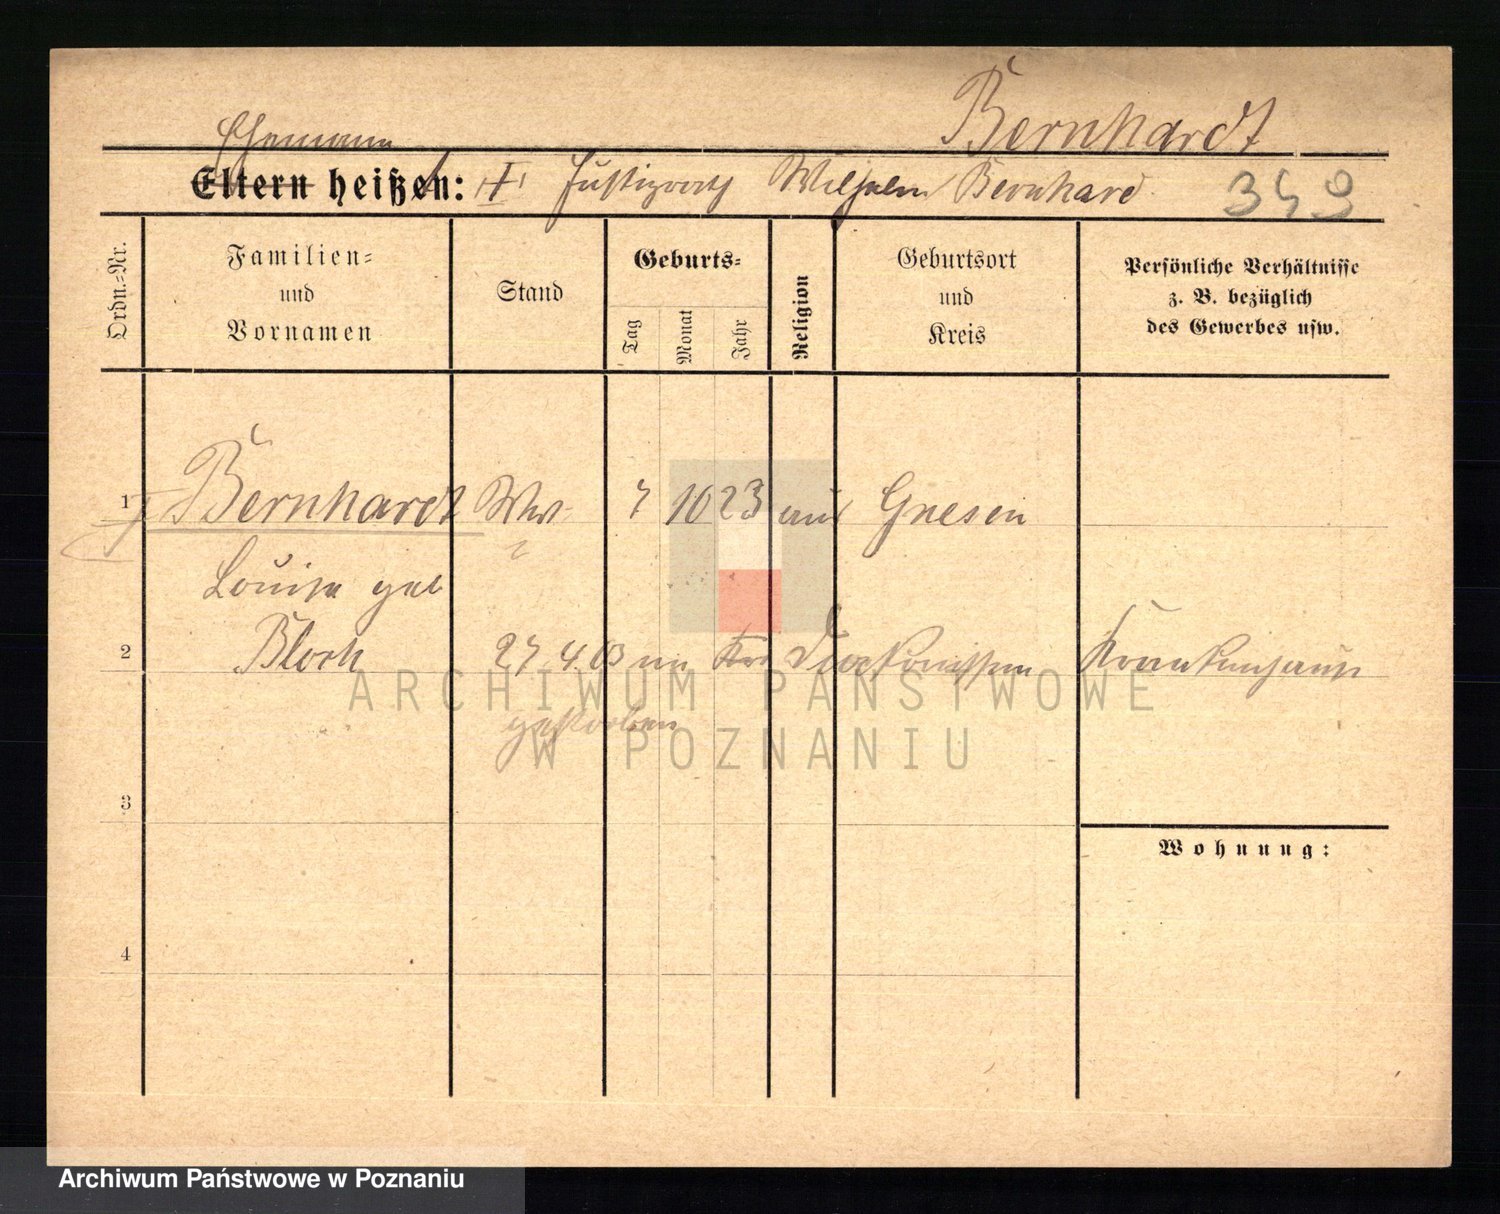 Bernhardt
Ehemann
Eltern heißen: I Justizrath Wilhelm Bernhard
349
Ordn.-Nr.
Familien-
und
Vornamen
Stand
Geburts-
Tag
Monat
Jahr
Religion
Geburtsort
und
Kreis
Persönliche Verhältnisse
z. B. bezüglich
des Gewerbes usw.
1 Bernhardt Ww. 7 10 23 aus Gnesen
Louise geb
Bloch
2 27 4. 03 im Diakonissen Krankenhause
gestorben
3
Wohnung:
4
ARCHIWUM PAŃSTWOWE
W POZNANIU
Archiwum Państwowe w Poznaniu